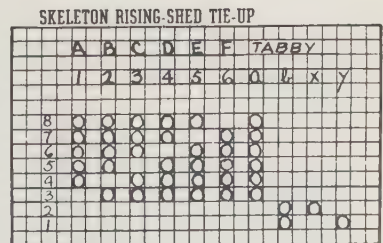 SKELETON RISING-SHED TIE-UP
A B C D E F TABBY
1 2 3 4 5 6 a b x y
8
7
6
5
4
3
2
1